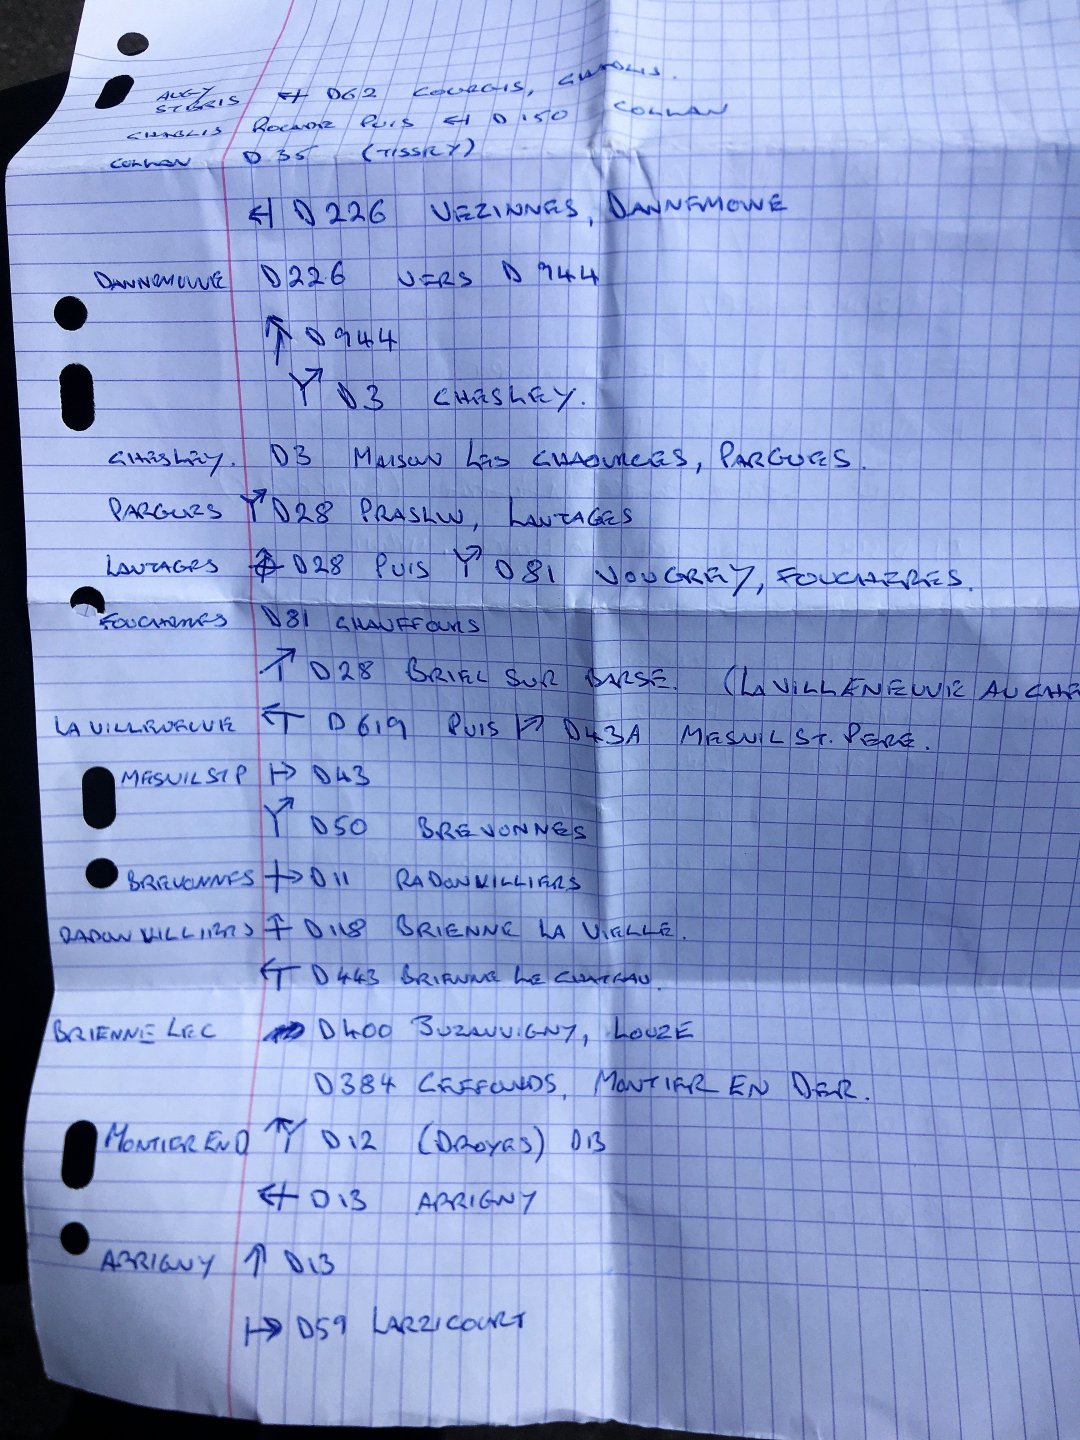 AUGY
ST BRIS ↤ D62 COURGIS, CHABLIS.
CHABLIS ROCADE PUIS ↤ D150 COLLAN
COLLAN D35 (TISSEY)
↤ D226 VEZINNES, DANNEMOINE
DANNEMOINE D226 VERS D944
↑ D944
Y↗ D3 CHESLEY.
CHESLEY. D3 MAISON LES CHAOURCES, PARGUES.
PARGUES Y↗ D28 PRASLIN, LANTAGES
LANTAGES D28 PUIS Y↗ D81 VOUGREY, FOUCHERES.
FOUCHERES D81 CHAUFFOURS
↗ D28 BRIEL SUR BARSE. (LA VILLENEUVE AU CHE
LA VILLENEUVE ← D619 PUIS D43A MESNIL ST. PERE.
MESNIL ST P ↦ D43
Y↗ D50 BREVONNES
BREVONNES → D11 RADONVILLIERS
RADONVILLIERS ↑ D118 BRIENNE LA VIELLE.
← D443 BRIENNE LE CHATEAU.
BRIENNE LE C D400 JUZANVIGNY, LOUZE
D384 CEFFONDS, MONTIER EN DER.
MONTIER EN D ↖Y D12 (DROYES) D13
← D13 ARRIGNY
ARRIGNY ↑ D13
↦ D59 LARZICOURT